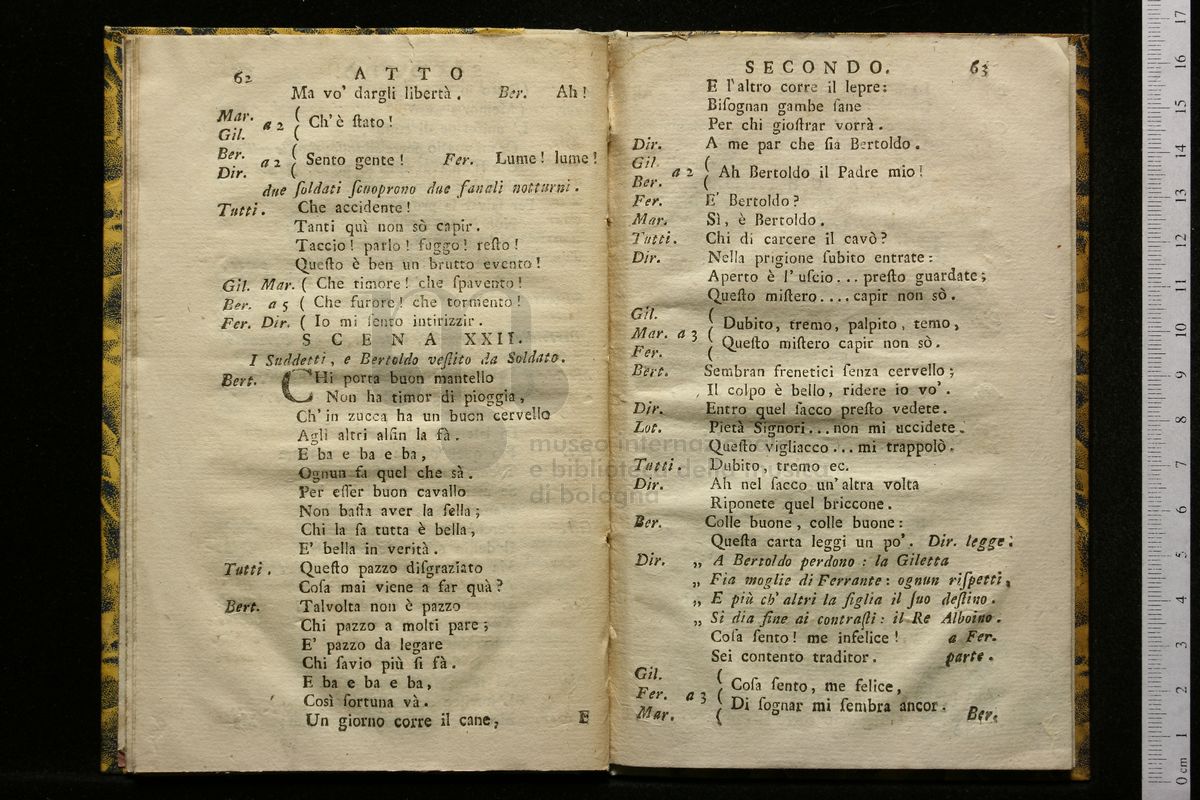 62 ATTO
Ma vo' dargli libertà. Ber. Ah!
Mar.
Gil. a 2 ( Ch'è ſtato!
Ber.
Dir. a 2 ( Sento gente! Fer. Lume! lume!
due ſoldati ſcuoprono due fanali notturni.
Tutti. Che accidente!
Tanti quì non sò capir.
Taccio! parlo! fuggo! reſto!
Queſto è ben un brutto evento!
Gil. Mar. ( Che timore! che ſpavento!
Ber. a 5 ( Che furore! che tormento!
Fer. Dir. ( Io mi ſento intirizzir.
SCENA XXII.
I Suddetti, e Bertoldo veſtito da Soldato.
Bert. CHi porta buon mantello
Non ha timor di pioggia,
Ch'in zucca ha un buon cervello
Agli altri alfin la fà.
E ba e ba e ba,
Ognun fa quel che sà.
Per eſſer buon cavallo
Non baſta aver la ſella;
Chi la ſa tutta è bella,
E' bella in verità.
Tutti. Queſto pazzo diſgraziato
Coſa mai viene a far quà?
Bert. Talvolta non è pazzo
Chi pazzo a molti pare;
E' pazzo da legare
Chi ſavio più ſi fà.
E ba e ba e ba,
Così fortuna và.
Un giorno corre il cane,
E
SECONDO. 63
E l'altro corre il lepre:
Biſognan gambe ſane
Per chi gioſtrar vorrà.
Dir. A me par che ſia Bertoldo.
Gil.
Ber. a 2 ( Ah Bertoldo il Padre mio!
Fer. E' Bertoldo?
Mar. Sì, è Bertoldo.
Tutti. Chi di carcere il cavò?
Dir. Nella prigione ſubito entrate:
Aperto è l'uſcio... preſto guardate;
Queſto miſtero.... capir non sò.
Gil.
Mar. a 3 ( Dubito, tremo, palpito, temo,
Fer. ( Queſto miſtero capir non sò.
Bert. Sembran frenetici ſenza cervello;
Il colpo è bello, ridere io vo'.
Dir. Entro quel ſacco preſto vedete.
Lot. Pietà Signori... non mi uccidete.
Queſto vigliacco... mi trappolò.
Tutti. Dubito, tremo ec.
Dir. Ah nel ſacco un'altra volta
Riponete quel briccone.
Ber. Colle buone, colle buone:
Queſta carta leggi un po'. Dir. legge.
Dir. „ A Bertoldo perdono: la Giletta
„ Fia moglie di Ferrante: ognun riſpetti,
„ E più ch'altri la figlia il ſuo deſtino.
„ Si dia fine ai contraſti: il Re Alboino.
Coſa ſento! me infelice! a Fer.
Sei contento traditor. parte.
Gil.
Fer. a 3 ( Coſa ſento, me felice,
Mar. ( Di ſognar mi ſembra ancor.
Ber.
museo internaz
e biblioteca della musica
di bologna
0 cm 1 2 3 4 5 6 7 8 9 10 11 12 13 14 15 16 17